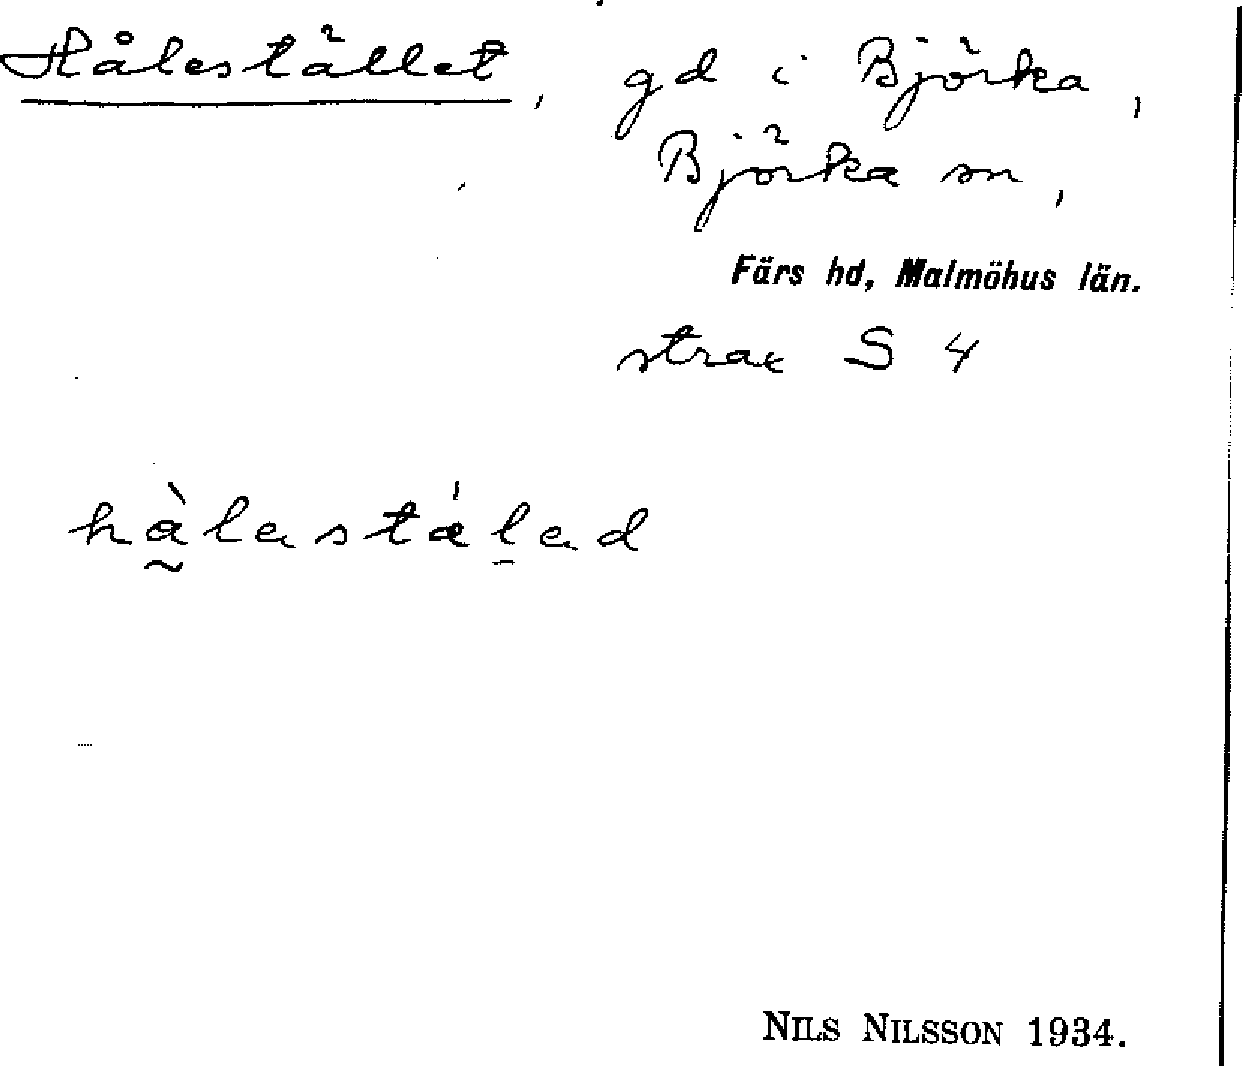 Hålestället, gd i Björka,
Björka sn,
Färs hd, Malmöhus län.
strax S 4
hàlastálad
NILS NILSSON 1934.